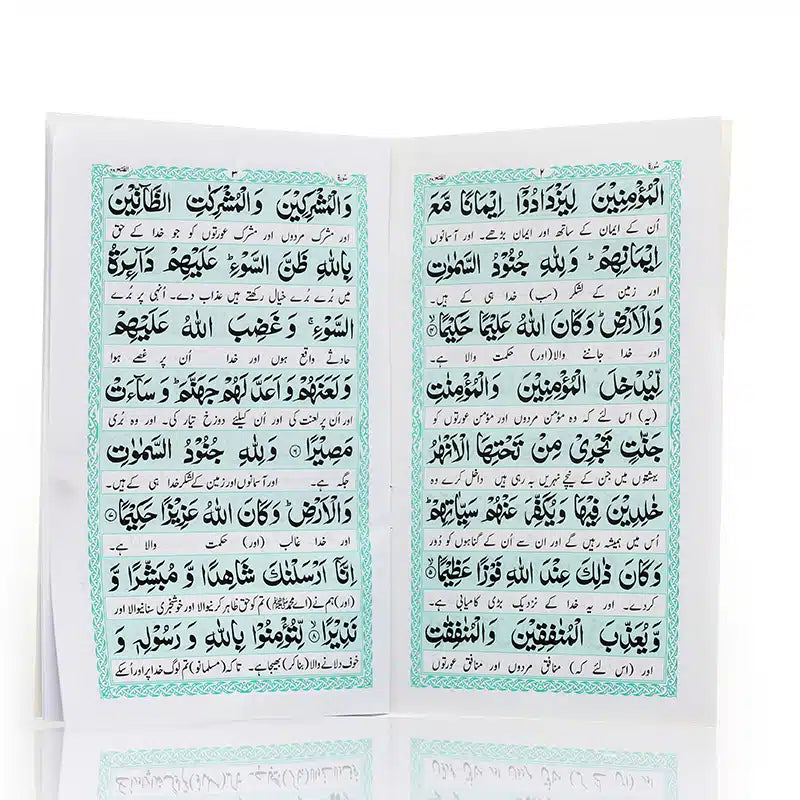 سورة ٢ الفتح ٤٨
الْمُؤْمِنِیْنَ لِیَزْدَادُوْۤا اِیْمَانًا مَّعَ
اُن کے ایمان کے ساتھ اور ایمان بڑھے۔ اور آسمانوں
اِیْمَانِهِمْ ؕ وَ لِلّٰهِ جُنُوْدُ السَّمٰوٰتِ
اور زمین کے لشکر (سب) خدا ہی کے ہیں۔
وَالْاَرْضِ ؕ وَكَانَ اللّٰهُ عَلِیْمًا حَكِیْمًا ۙ﴿۴﴾
اور خدا جاننے والا(اور) حکمت والا ہے۔
لِّیُدْخِلَ الْمُؤْمِنِیْنَ وَالْمُؤْمِنٰتِ
(یہ) اس لئے کہ وہ مؤمن مردوں اور مؤمن عورتوں کو
جَنّٰتٍ تَجْرِیْ مِنْ تَحْتِهَا الْاَنْهٰرُ
بہشتوں میں جن کے نیچے نہریں بہ رہی ہیں داخل کرے وہ
خٰلِدِیْنَ فِیْهَا وَیُكَفِّرَ عَنْهُمْ سَیِّاٰتِهِمْ ؕ
اُس میں ہمیشہ رہیں گے اور ان سے اُن کے گناہوں کو دُور
وَكَانَ ذٰلِكَ عِنْدَ اللّٰهِ فَوْزًا عَظِیْمًا ۙ﴿۵﴾
کردے۔ اور یہ خدا کے نزدیک بڑی کامیابی ہے۔
وَّیُعَذِّبَ الْمُنٰفِقِیْنَ وَالْمُنٰفِقٰتِ
اور (اس لئے کہ) منافق مردوں اور منافق عورتوں
سورة ٣ الفتح ٤٨
وَالْمُشْرِكِیْنَ وَالْمُشْرِكٰتِ الظَّآنِّیْنَ
اور مشرک مردوں اور مشرک عورتوں کو جو خدا کے حق
بِاللّٰهِ ظَنَّ السَّوْءِ ؕ عَلَیْهِمْ دَآىِٕرَةُ
میں بُرے بُرے خیال رکھتے ہیں عذاب دے۔ اُنہی پر بُرے
السَّوْءِ ۚ وَ غَضِبَ اللّٰهُ عَلَیْهِمْ
حادثے واقع ہوں اور خدا اُن پر غصے ہوا
وَلَعَنَهُمْ وَاَعَدَّ لَهُمْ جَهَنَّمَ ؕ وَسَآءَتْ
اور اُن پر لعنت کی اور اُن کیلئے دوزخ تیار کی۔ اور وہ بُری
مَصِیْرًا ﴿۶﴾ وَلِلّٰهِ جُنُوْدُ السَّمٰوٰتِ
جگہ ہے۔ اور آسمانوں اور زمین کے لشکر خدا ہی کے ہیں۔
وَالْاَرْضِ ؕ وَكَانَ اللّٰهُ عَزِیْزًا حَكِیْمًا ﴿۷﴾
اور خدا غالب (اور) حکمت والا ہے۔
اِنَّاۤ اَرْسَلْنٰكَ شَاهِدًا وَّ مُبَشِّرًا وَّ
(اور) ہم نے (اے محمد ﷺ) تم کو حق ظاہر کرنیوالا اور خوشخبری سنانیوالا اور
نَذِیْرًا ۙ﴿۸﴾ لِّتُؤْمِنُوْا بِاللّٰهِ وَ رَسُوْلِهٖ وَ
خوف دلانے والا (بنا کر) بھیجا ہے۔ تاکہ (مسلمانو) تم لوگ خدا پر اور اُسکے